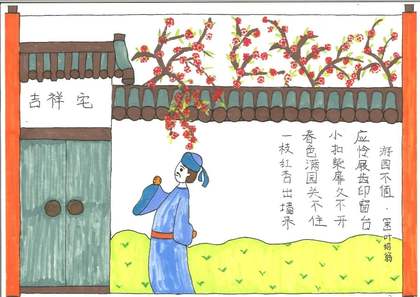 吉祥宅
游园不值·(宋)叶绍翁
应怜展齿印窗台
小扣柴扉久不开
春色满园关不住
一枝红杏出墙来